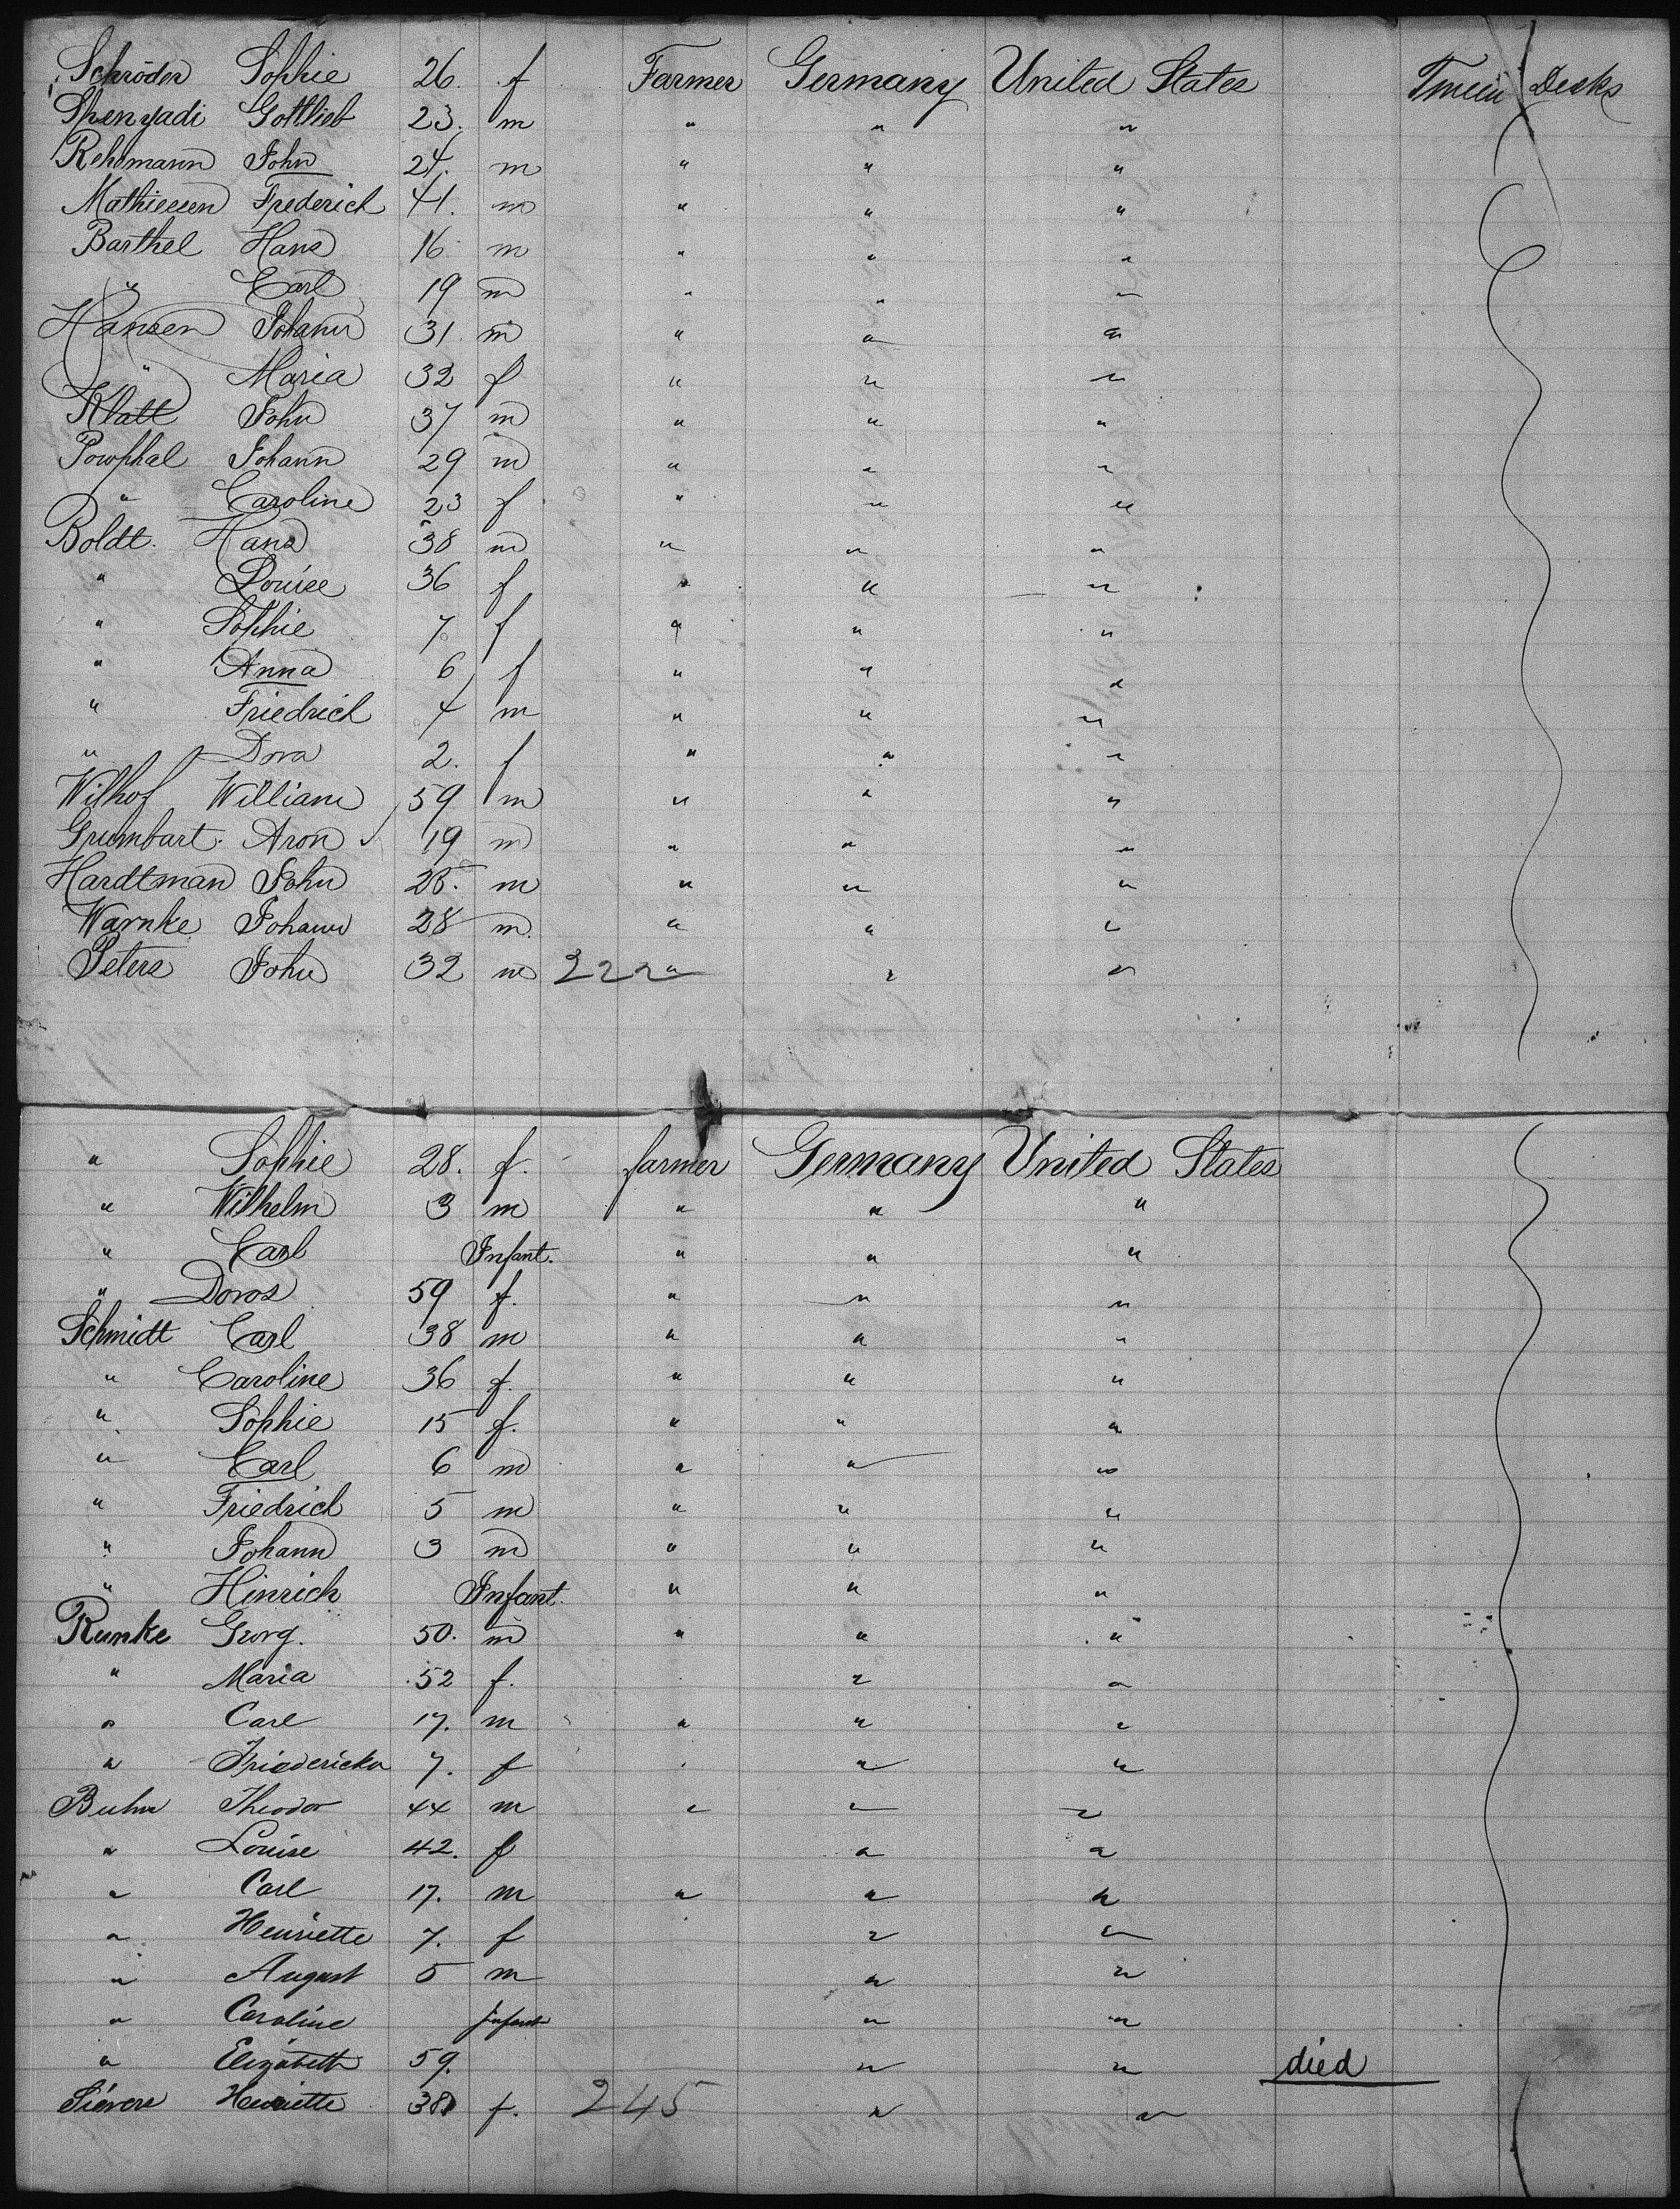 Schröder Sophie 26. f Farmer Germany United States Decks
Spenyadi Gottlieb 23. m " " "
Rehmann John 24. m " " "
Mathiessen Frederich 41. m " " "
Barthel Hans 16 m " " "
" Carl 19 m " " "
Hansen Johann 31 m " " "
" Maria 32 f " " "
Klatt John 37 m " " "
Powphal Johann 29 m " " "
" Caroline 23 f " " "
Boldt. Hans 38 m " " "
" Louise 36 f " " "
" Sophie 7 f " " "
" Anna 6 f " " "
" Friedrich 4 m " " "
" Dora 2. f " " "
Wilhof William 59 m " " "
Grumbart. Aron 19 m " " "
Hardtman John 28. m " " "
Warnke Johann 28 m. " " "
Peters John 32 m 222 " " "
" Sophie 28. f. farmer Germany United States
" Wilhelm 3 m " " "
" Carl Infant. " " "
" Doros 59 f. " " "
Schmidt Carl 38 m " " "
" Caroline 36 f. " " "
" Sophie 15 f. " " "
" Carl 6 m " " "
" Friedrich 5 m " " "
" Johann 3 m " " "
" Hinrich Infant. " " "
Runke Georg. 50. m " " "
" Maria 52 f. " "
" Carl 17. m " " "
" Friedericka 7. f " "
Buhn Theodor 44 m " " "
" Louise 42. f " "
" Carl 17. m " " "
" Henriette 7. f " "
" August 5 m " "
" Caroline Infant " "
" Elizabeth 59. " " died
Sievers Henriette 38 f. 245 " "